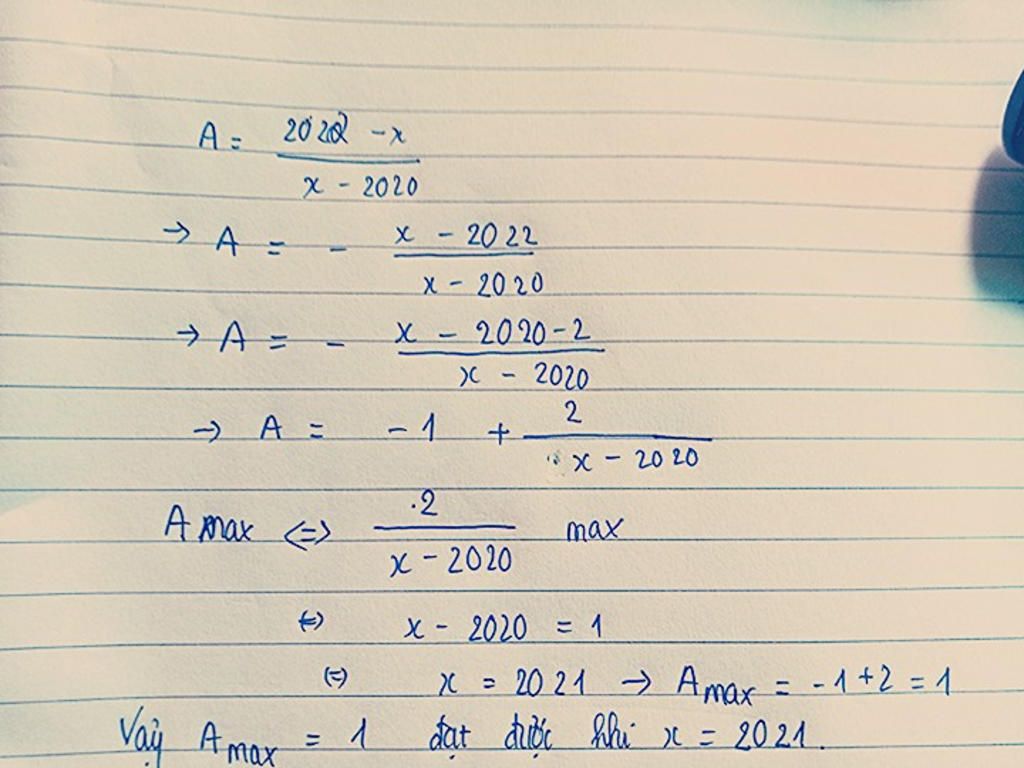 A = \frac{2022 - x}{x - 2020}
→ A = - \frac{x - 2022}{x - 2020}
→ A = - \frac{x - 2020 - 2}{x - 2020}
→ A = -1 + \frac{2}{x - 2020}
A max ⇔ \frac{2}{x - 2020} max
⇔ x - 2020 = 1
⇔ x = 2021 → A max = -1 + 2 = 1
Vậy A max = 1 đạt được khi x = 2021.